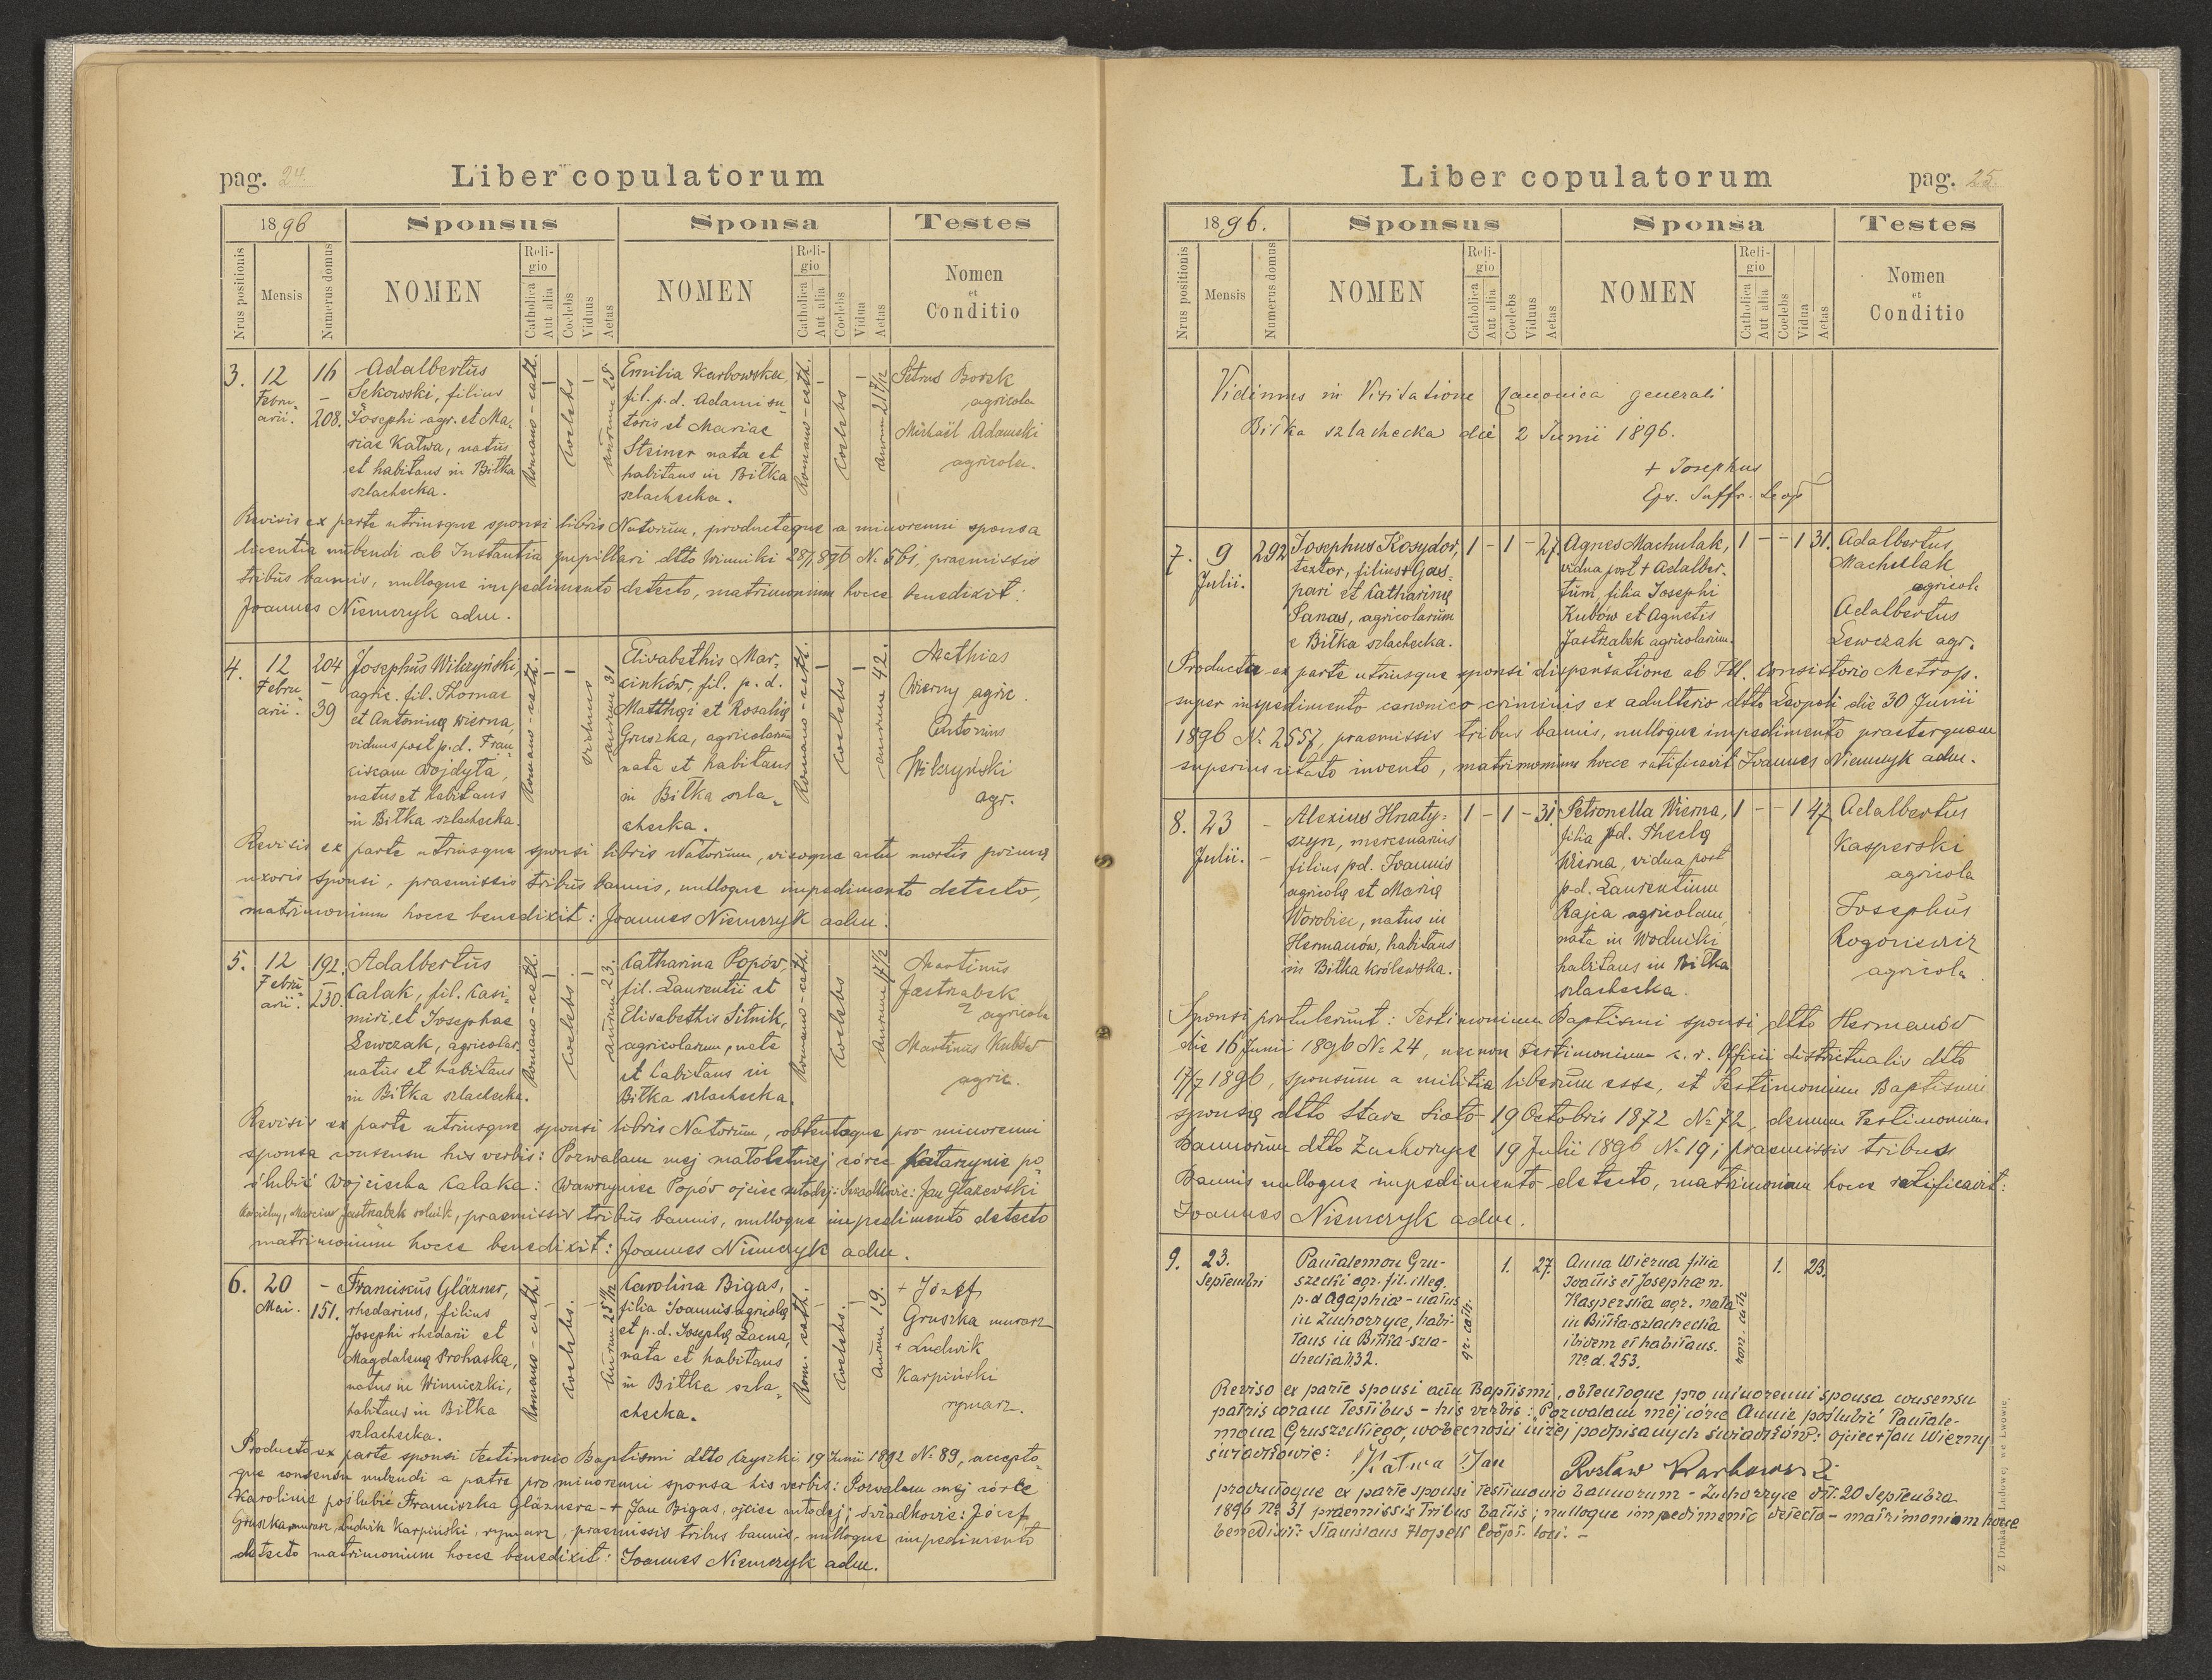 pag. 24.
Liber copulatorum
1896
Sponsus
Sponsa
Testes
Nrus positionis
Mensis
Numerus domus
NOMEN
Religio
Catholica
Aut alia
Coelebs
Viduus
Aetas
NOMEN
Religio
Catholica
Aut alia
Coelebs
Vidua
Aetas
Nomen
et
Conditio
3.
12
Febru-
arii.
16
–
208.
Adalbertus
Sekowski, filius
Josephi agr. et Ma-
riae Katwa, natus
et habitans in Biłka
szlachecka.
Romano-cath.
–
Coelebs
–
annorum 25
Emilia Karbowska,
fil. p. d. Adami su-
toris et Mariae
Steiner nata et
habitans in Biłka
szlachecka.
Romano-cath.
–
Coelebs
–
annorum 21 7/12
Petrus Borek
agricola
Michaël Adamski
agricola.
Revisis ex parte utriusque sponsi libris Natorum, productaque a minorenni sponsa
licentia nubendi ab Instantia pupillari dtto Winniki 28/1 896 N. 561, praemissis
tribus bannis, nulloque impedimento detecto, matrimonium hocce benedixit:
Joannes Niemczyk adm.
4.
12
Febru-
arii.
204
–
39
Josephus Wilczyński,
agric. fil. Thomae
et Antoninę Wierna,
viduus post p. d. Fran-
ciscam Wojdyta,
natus et habitans
in Biłka szlachecka.
Romano-cath.
–
–
viduus
annorum 31
Elisabethis Mar-
cinków, fil. p. d.
Matthęi et Rosalię
Gruszka, agricolarum
nata et habitans
in Biłka szla-
checka.
Romano-cath.
–
coelebs
–
annorum 42.
Mathias
Wierny agric.
Antonius
Wilczyński
agr.
Revisis ex parte utriusque sponsi libris Natorum, visoque actu mortis primę
uxoris sponsi, praemissis tribus bannis, nulloque impedimento detecto,
matrimonium hocce benedixit: Joannes Niemczyk adm.
5.
12
Febru-
arii.
192.
–
230.
Adalbertus
Kalak, fil. Casi-
miri, et Josephae
Lewczak, agricolar.
natus et habitans
in Biłka szlachecka.
Romano-cath.
–
coelebs.
–
annorum 23.
Catharina Popów,
fil. Laurentii et
Elisabethis Sitnik,
agricolarum, nata
et habitans in
Biłka szlachecka.
Romano-cath.
–
Coelebs
annorum 17 1/2
Martinus
Jastrzabek
agricola
Martinus Kubów
agric.
Revisis ex parte utriusque sponsi libris Natorum, obtentoque pro minorenni
sponsa consensu his verbis: Pozwalam mej małoletniej córce Katarzynie po-
ślubić Wojciecha Kalaka: Wawrzyniec Popów ojciec młodej: Świadkowie: Jan Głazewski
Marcin Jastrzabek rolnik, praemissis tribus bannis, nulloque impedimento detecto
matrimonium hocce benedixit: Joannes Niemczyk adm.
6.
20
Mai.
–
151.
Franciscus Gläzner,
rhedarius, filius
Josephi rhedarii et
Magdalenę Prohaska,
natus in Winniczki,
habitans in Biłka
szlachecka.
Romano-cath.
–
coelebs.
–
Carolina Bigas,
filia Joannis agricolę
et p. d. Josephę Łacna,
nata et habitans
in Biłka szla-
checka.
Rom. cath.
–
coelebs.
–
annorum 19.
+ Józef
Gruszka murarz
+ Ludwik
Karpiński
rymarz.
Producto ex parte sponsi Testimonio Baptismi dtto Czyszki 19 Junii 1892 N. 89, accepto-
que consensu nubendi a patre pro minorenni sponsa his verbis: Pozwalam mej córce
Karolinie poślubić Franciszka Gläznera – + Jan Bigas, ojciec młodej; świadkowie: Józef
Gruszka murarz, Ludwik Karpiński, rymarz, praemissis tribus bannis, nulloque impedimento
detecto matrimonium hocce benedixit: Joannes Niemczyk adm.
Liber copulatorum
pag. 25.
1896.
Sponsus
Sponsa
Testes
Nrus positionis
Mensis
Numerus domus
NOMEN
Religio
Catholica
Aut alia
Coelebs
Viduus
Aetas
NOMEN
Religio
Catholica
Aut alia
Coelebs
Vidua
Aetas
Nomen
et
Conditio
Vidimus in Visitatione canonica generali
Biłka szlachecka die 2 Junii 1896.
+ Josephus
Eps. Suffr. Leop
7.
9
Julii.
292
Josephus Kosydor,
textor, filius + Gas-
pari et Catharinę
Panas, agricolarum
e Biłka szlachecka.
1 – 1 – 27.
Agnes Machulak,
vidua post + Adalber-
tum, filia Josephi
Kubów et Agnetis
Jastrzabek agricolarum.
1 – – 1 31.
Adalbertus
Machulak
agricola
Adalbertus
Lewczak agr.
Producta ex parte utriusque sponsi dispensatione ab Ill. Consistorio Metrop.
super impedimento canonico criminis ex adulterio dtto Leopoli die 30 Junii
1896 N. 2557, praemissis tribus bannis, nulloque impedimento praeterquam
superius citato invento, matrimonium hocce ratificavit Joannes Niemczyk adm.
8.
23
Julii.
–
–
Alexius Hnaty-
szyn, mercenarius
filius pd. Joannis
agricolę et Marię
Worobiec, natus in
Hermanów, habitans
in Biłka królewska.
1 – 1 – 31.
Petronella Wierna,
filia pd. Theclę
Wierna, vidua post
p. d. Laurentium
Rajca agricolam,
nata in Wodniki
habitans in Biłka
szlachecka.
1 – – 1 47
Adalbertus
Kasperski
agricola
Josephus
Rogoniewicz
agricola
Sponsi protulerunt: Testimonium Baptismi sponsi dtto Hermanów
die 16 Junii 1896 N. 24, necnon Testimonium c. r. Officii districtualis dtto
17/7 1896, sponsum a militia liberum esse, et Testimonium Baptismi
sponsę dtto Stare Sioło 19 Octobris 1872 No 72, demum Testimonium
Bannorum dtto Zuchorzyce 19 Julii 1896 N. 19; praemissis tribus
Bannis nulloque impedimento detecto, matrimonium hocce ratificavit:
Joannes Niemczyk adm.
9.
23.
Septembri
Pantalemon Gru-
szecki agr. fil. illeg.
p. d Agaphiæ – natus
in Zuchorzyce, habi-
tans in Biłka-szla-
checka 132.
gr. cath.
1.
27.
Anna Wierna filia
Joannis et Josephæ n.
Kasperska agr. nata
in Biłka-szlachecka
ibidem et habitans.
No. d. 253.
rom. cath
1.
23.
Reviso ex parte sponsi actu Baptismi, obtentoque pro minorenni sponsa consensu
patris coram Testibus – his verbis: „Pozwalam mej córce Annie poślubić Pantale-
mona Gruszeckiego, wobecności niżej podpisanych świadków: ojciec + Jan Wierny
świadkowie: Katwa Jan
producto­que ex parte sponsi Testimonio bannorum – Zuchorzyce dt. 20 Septembra
1896 No. 31 praemissis Tribus bannis; nulloque impedimento detecto – matrimonium hocce
benedixit: Stanislaus Hopek Coópt. loci. –
Z Drukarni Ludowej we Lwowie